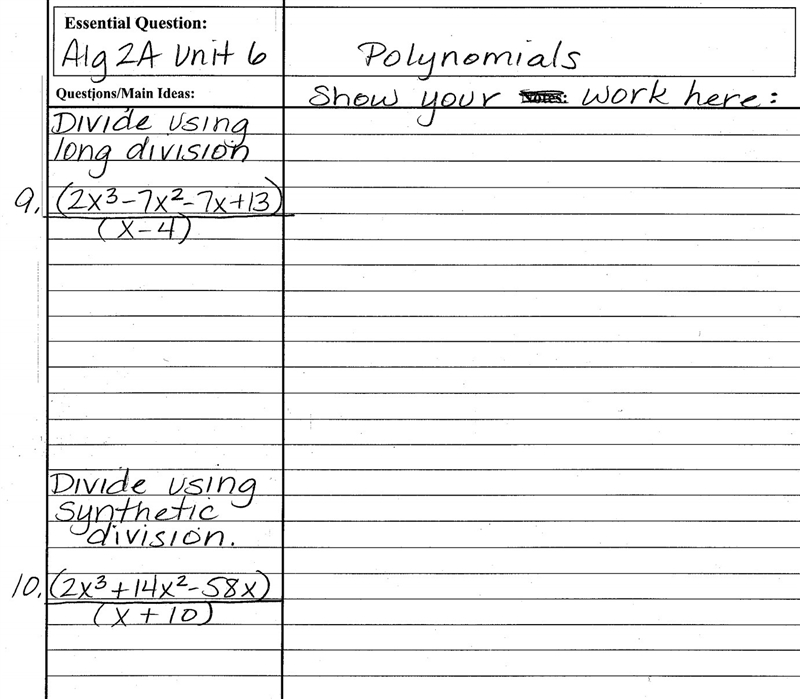 Essential Question:
Alg 2A Unit 6 Polynomials
Questions/Main Ideas: Show your work here:
Divide using
long division
9. (2x³-7x²-7x+13)
(x-4)
Divide using
synthetic
division.
10. (2x³+14x²-58x)
(x+10)